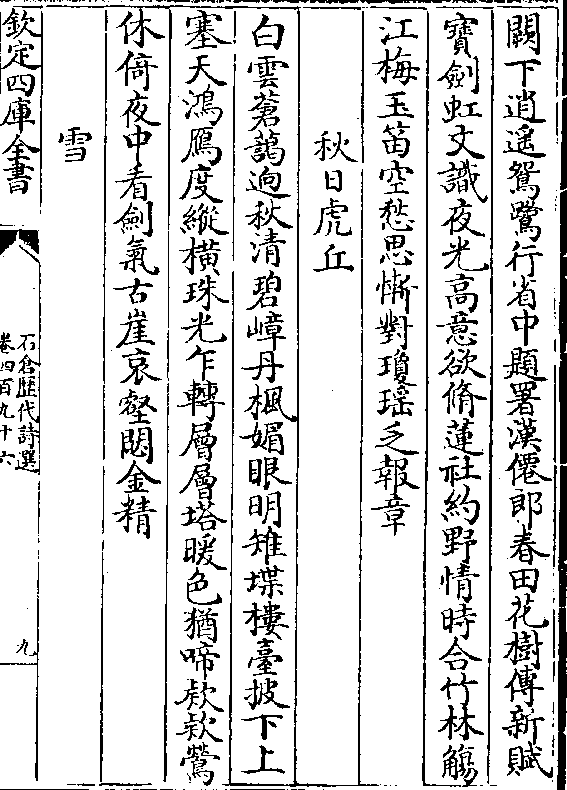 闕下逍遥鴛鷺行省中題署漢僊郎春田花樹傳新賦
寶劍虹文識夜光高意欲脩蓮社約野情時合竹林觴
江梅玉笛空愁思慚對瓊瑶乏報章
秋日虎丘
白雲蒼藹逈秋清碧嶂丹楓媚眼明雉堞樓臺披下上
塞天鴻鴈度縱横珠光乍轉層層塔暖色猶啼欵欵鶯
休倚夜中看劍氣古崖哀壑閟金精
雪
欽定四庫全書
石倉歴代詩選
卷四百九十六
九